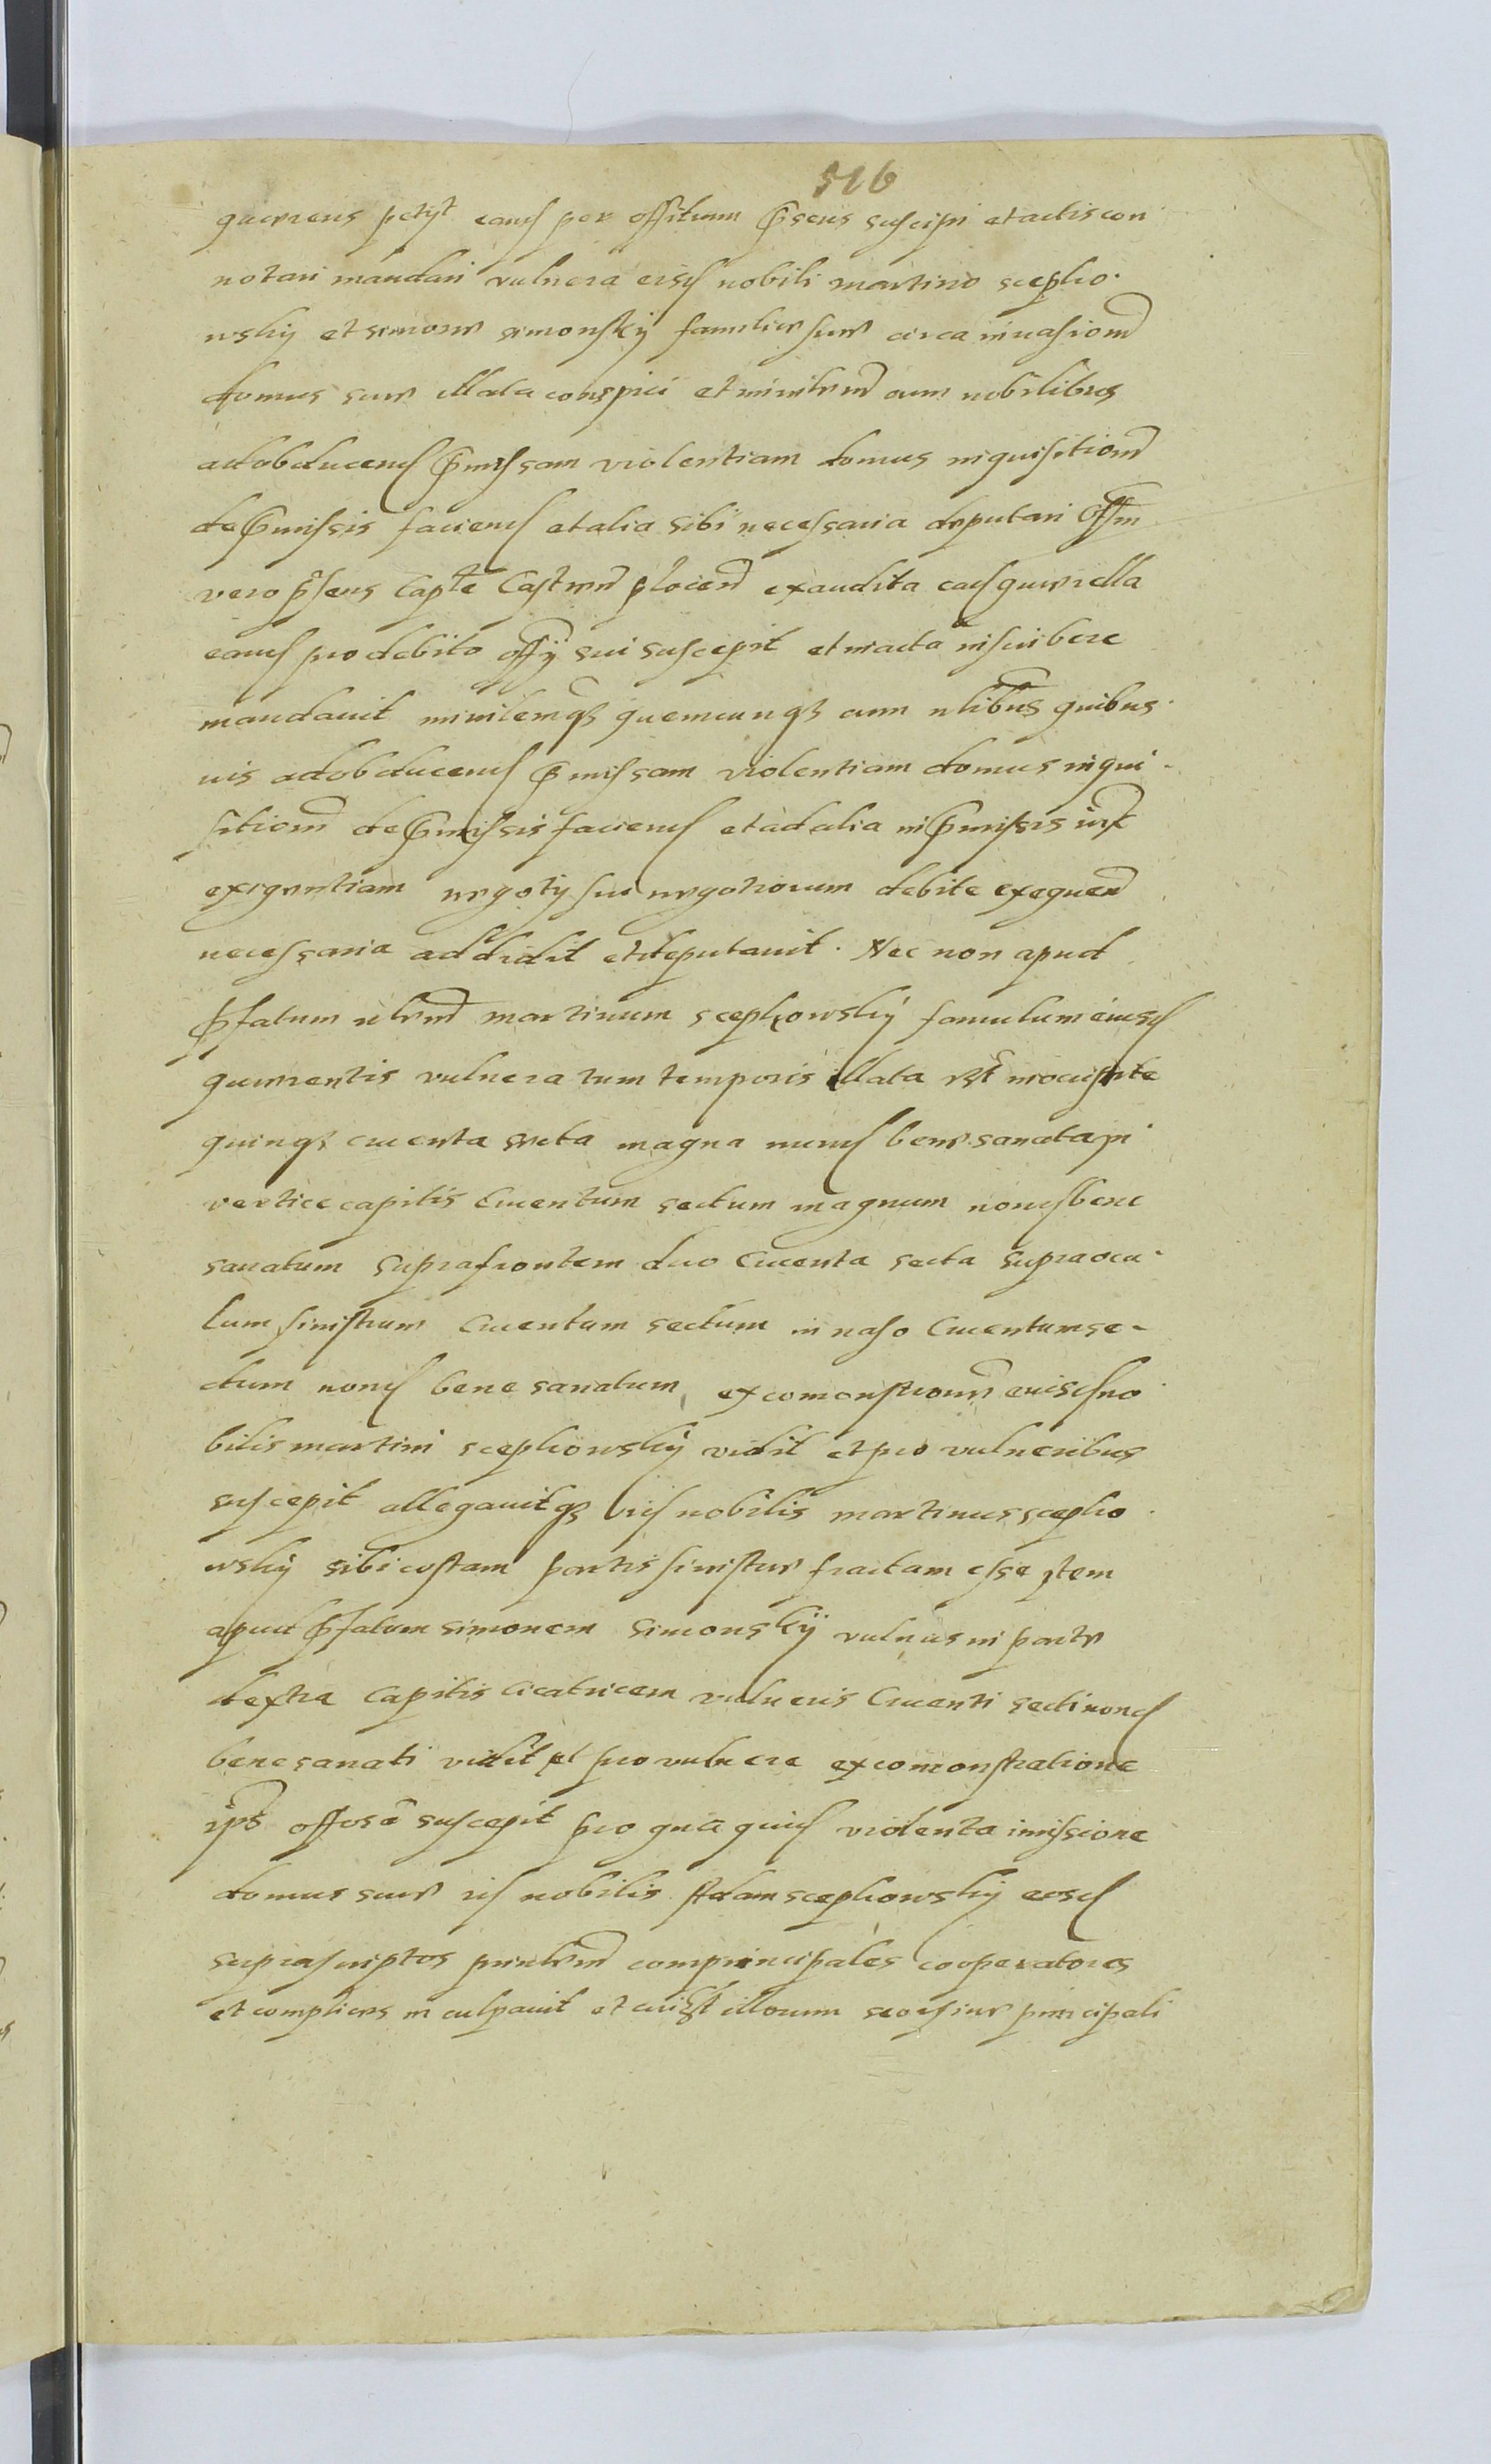 516
quaerens petyt eand per offitium pnsens suscipi et actis con
notari mandari vulnera eisd nobili martino sceplio
wsky et simone simonsky familiae suae circa invasionem
domus suae illata conspici et minlrem cum nobilibus
ad obducend pmissam violentiam domus inquisitionem
de pmissis faciend et alia sibi necessaria deputari offm
vero pnsens Capte Castren plocen exaudita ead quaerella
eand pro debito offy sui suscepit et in acta inscribere
mandavit minlemqz quemcunqz cum nlibus quibus
vis ad obducend pmissam violentiam domus inqui
sitionem de pmissis faciend et ad alia in pmissis iuxt
exigentiam negoty seu negotiorum debite exequend
necessaria addidit et deputavit. Nec non apud
pfatum nlem martinum scepliowsky famulum eiusd
quaerentis vulnera tum temporis illata
quinqz cruenta secta magna nund bene sanata in
vertice capitis Cruentum sectum magnum nond bene
sanatum supra frontem duo Cruenta secta supra ocu
lum sinistrum Cruentum sectum in naso Cruentum se-
ctum nond bene sanatum ex comonstrone eiusd no
bilis martini scepliowsky vidit et pro vulneribus
suscepit allegavitqz id nobilis martinus sceplio
wsky sibi costam partis sinistrae fractam esse Item
apud pfatum simonem simonsky vulnus in parte
dextra Capitis cicatricem vulneris Cruenti secti nond
bene sanati vidit et pro vulnere ex comonstratione
ips suscepit pro qua quid violenta imissione
domus suae id nobilis Adam scepliowsky eosd
suprascriptos comprincipales cooperatores
et complices inculpavit et illorum seorsive principali